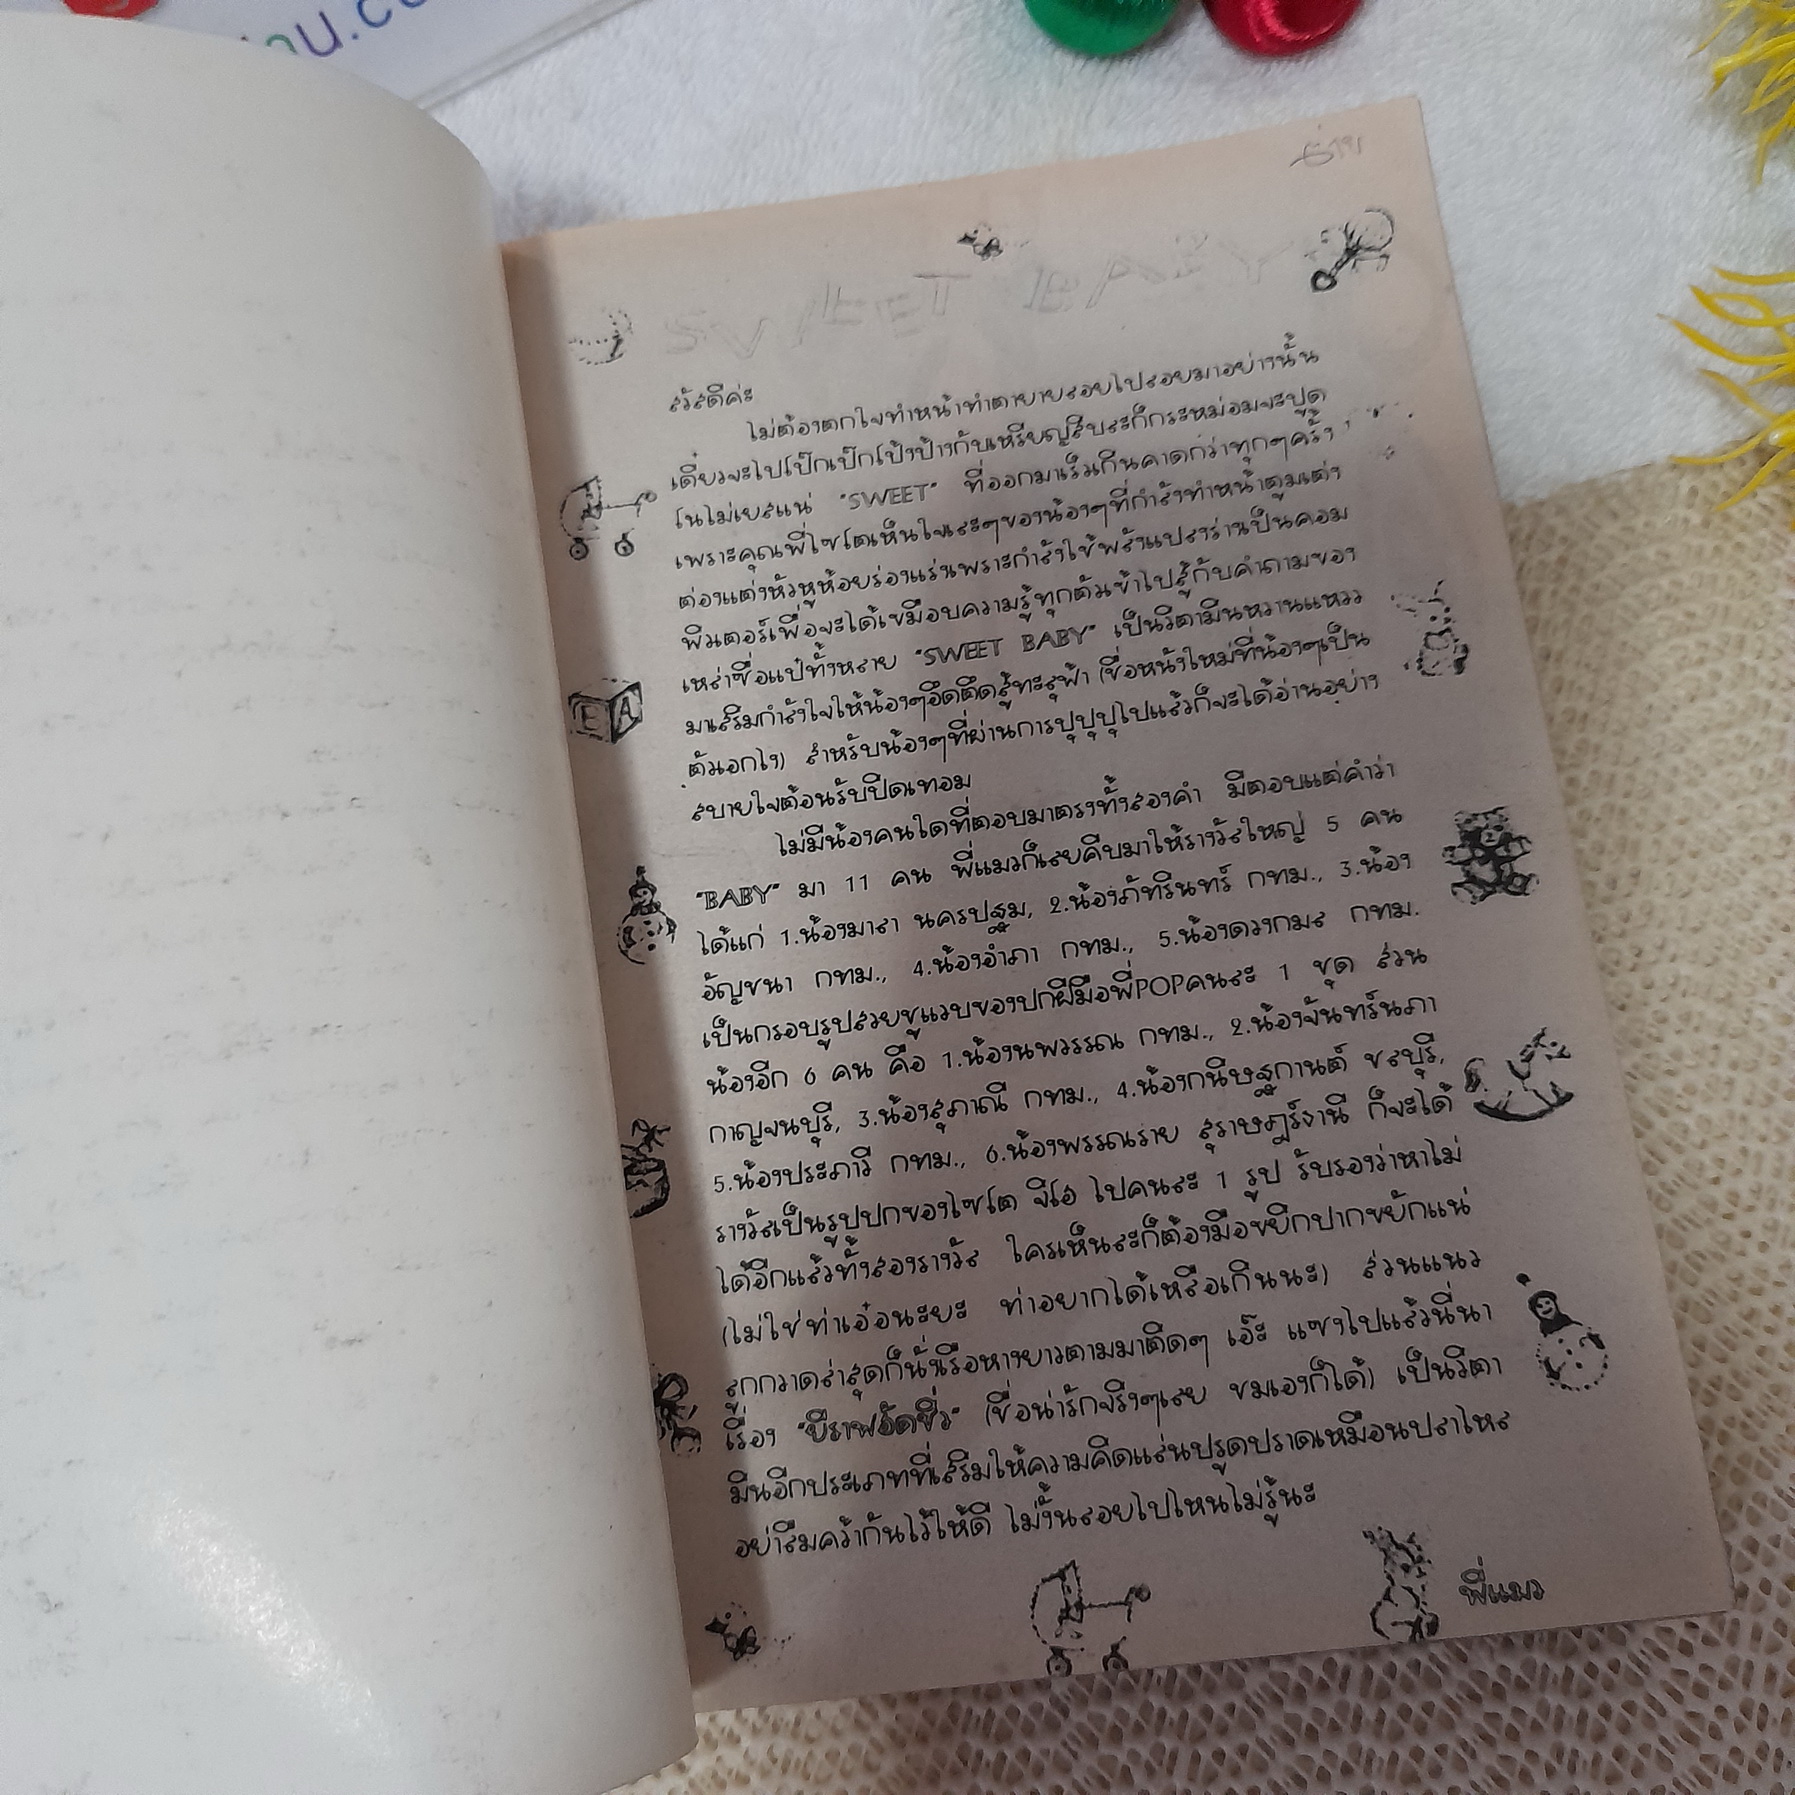 SWEET BABY
สวัสดีค่ะ
ไม่ต้องตกใจทำหน้าทำตายายลอยไปลอยมาอย่างนั้น
เดี๋ยวจะไปโป๊กเป๊กโป้งป้างกับเหรียญสิบละก็กระหม่อมจะปูด
โนไม่เยสแน่ "SWEET" ที่ออกมาเร็วเกินคาดกว่าทุกๆครั้ง
เพราะคุณพี่ไซโตเห็นใจละๆของน้องๆที่กำลังทำหน้าตูมเต่ง
ต่องแต่งหัวหูห้อยร่องแร่งเพราะกำลังใช้พลังแปลงร่างเป็นคอม
พิวเตอร์เพื่อจะได้เขมือบความรู้ทุกตัวเข้าไปสู้กับคำถามของ
เหล่าซือแป๋ทั้งหลาย "SWEET BABY" เป็นวิตามินหวานแหวว
มาเสริมกำลังใจให้น้องๆฮึดฮึดสู้ทะลุฟ้า (ชื่อหนังใหม่ที่น้องๆเป็น
ตัวเอกไง) สำหรับน้องๆที่ผ่านการปุปุปุไปแล้วก็จะได้อ่านอย่าง
สบายใจต้อนรับปิดเทอม
ไม่มีน้องคนใดที่ตอบมาตรงทั้งสองคำ มีตอบแต่คำว่า
"BABY" มา 11 คน พี่แมวก็เลยคีบมาให้รางวัลใหญ่ 5 คน
ได้แก่ 1.น้องมาลา นครปฐม, 2.น้องภัทรินทร์ กทม., 3.น้อง
อัญชนา กทม., 4.น้องอำภา กทม., 5.น้องดวงกมล กทม.
เป็นกรอบรูปสวยชูแวบของปกฝีมือพี่POPคนละ 1 ชุด ส่วน
น้องอีก 6 คน คือ 1.น้องนพวรรณ กทม., 2.น้องจันทร์นภา
กาญจนบุรี, 3.น้องสุภาณี กทม., 4.น้องกนิษฐกานต์ ชลบุรี,
5.น้องประภาวี กทม., 6.น้องพรรณราย สุราษฎร์ธานี ก็จะได้
รางวัลเป็นรูปปกของไซโต จิโฮ ไปคนละ 1 รูป รับรองว่าหาไม่
ได้อีกแล้วทั้งสองรางวัล ใครเห็นละก็ต้องมือขยิกปากขยักแน่
(ไม่ใช่ท่าเอ๋อนะยะ ท่าอยากได้เหลือเกินนะ) ส่วนแนว
ลูกกวาดล่าสุดก็นั่งเรือหางยาวตามมาติดๆ เอ๊ะ แซงไปแล้วนี่นา
เรื่อง "ยีราฟอัดซิ่ว" (ชื่อน่ารักจริงๆเลย ชมเองก็ได้) เป็นวิตา
มินอีกประเภทที่เสริมให้ความคิดแล่นปรูดปราดเหมือนปลาไหล
อย่าลืมคว้ากันไว้ให้ดี ไม่งั้นลอยไปไหนไม่รู้นะ
พี่แมว